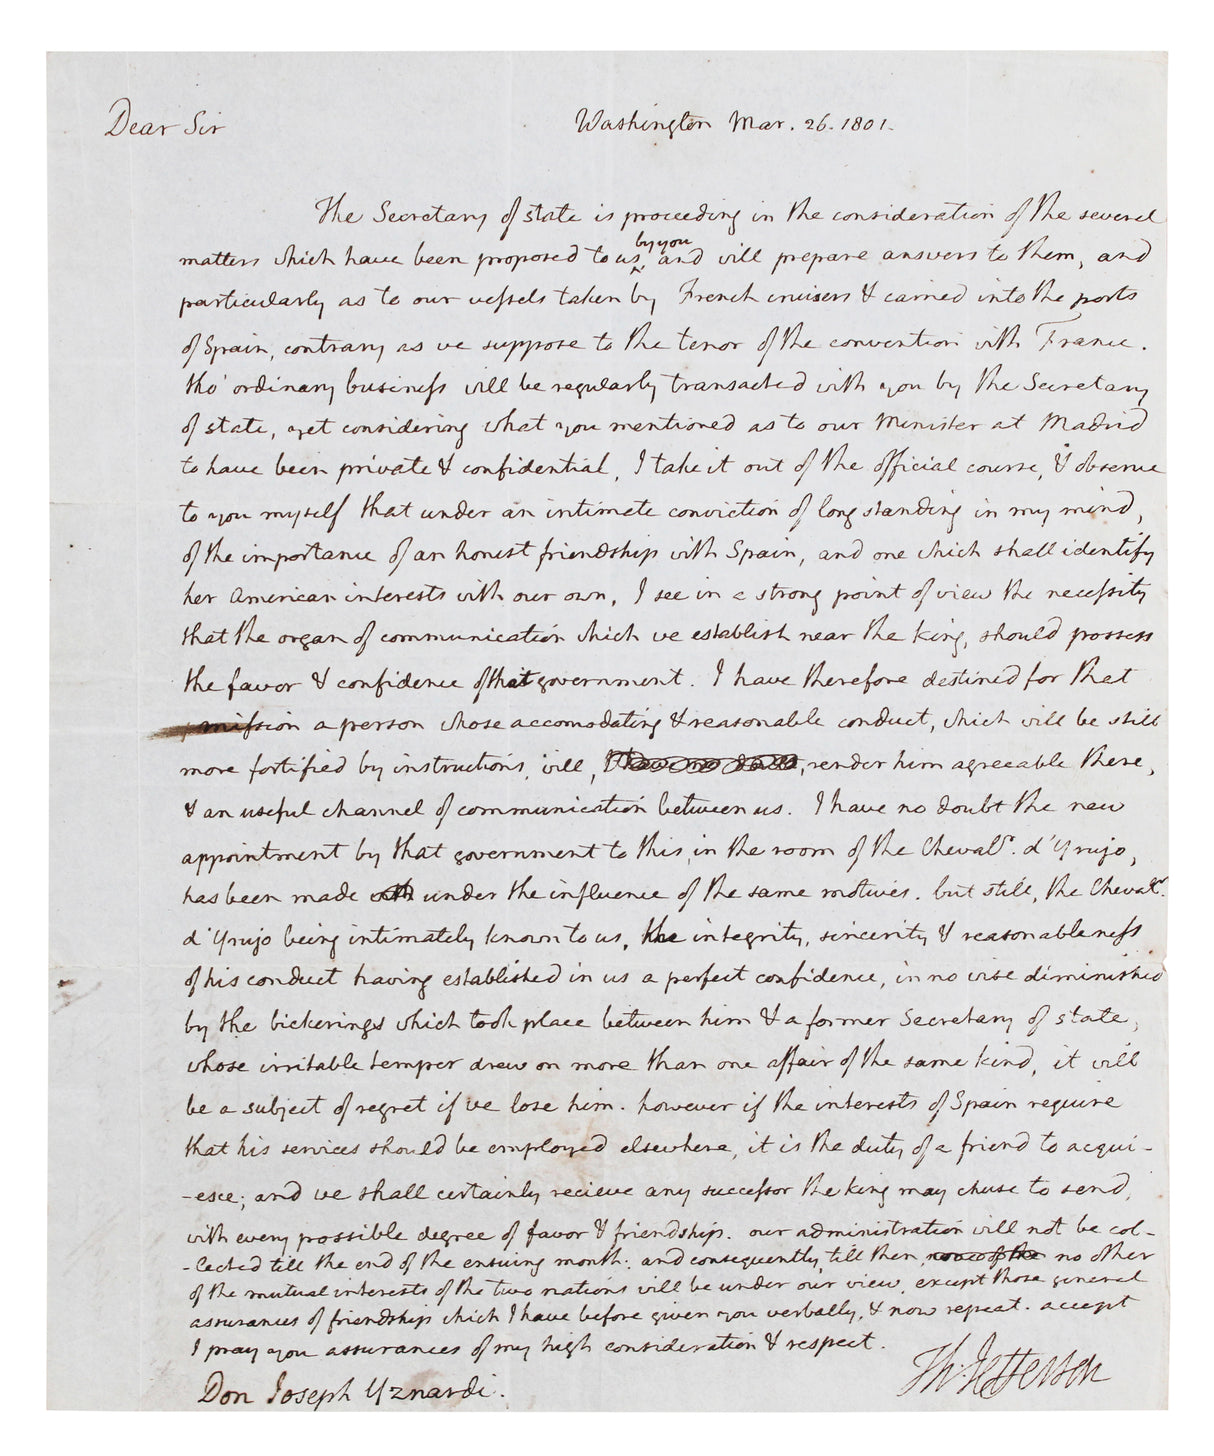 Dear Sir Washington Mar. 26. 1801.
The Secretary of state is proceeding in the consideration of the several
matters which have been proposed to us by you and will prepare answers to them, and
particularly as to our vessels taken by French cruisers & carried into the ports
of Spain, contrary as we suppose to the tenor of the convention with France.
tho' ordinary business will be regularly transacted with you by the Secretary
of state, yet considering what you mentioned as to our Minister at Madrid
to have been private & confidential, I take it out of the official course, & observe
to you myself that under an intimate conviction of long standing in my mind,
of the importance of an honest friendship with Spain, and one which shall identify
her American interests with our own, I see in a strong point of view the necessity
that the organ of communication which we establish near the king, should possess
the favor & confidence of that government. I have therefore destined for that
mission a person whose accomodating & reasonable conduct, which will be still
more fortified by instructions, will, render him agreeable there,
& an useful channel of communication between us. I have no doubt the new
appointment by that government to this, in the room of the Chevalr. d'Yrujo,
has been made under the influence of the same motives. but still, the Chevalr.
d'Yrujo being intimately known to us, the integrity, sincerity & reasonableness
of his conduct having established in us a perfect confidence, in no wise diminished
by the bickerings which took place between him & a former Secretary of state,
whose irritable temper drew on more than one affair of the same kind, it will
be a subject of regret if we lose him. however if the interests of Spain require
that his services should be employed elsewhere, it is the duty of a friend to acqui-
-esce; and we shall certainly recieve any successor the king may chuse to send,
with every possible degree of favor & friendship. our administration will not be col-
-lected till the end of the ensuing month. and consequently, till then, no other
of the mutual interests of the two nations will be under our view, except those general
assurances of friendship which I have before given you verbally, & now repeat. accept
I pray you assurances of my high consideration & respect.
Th: Jefferson
Don Joseph Yznardi.